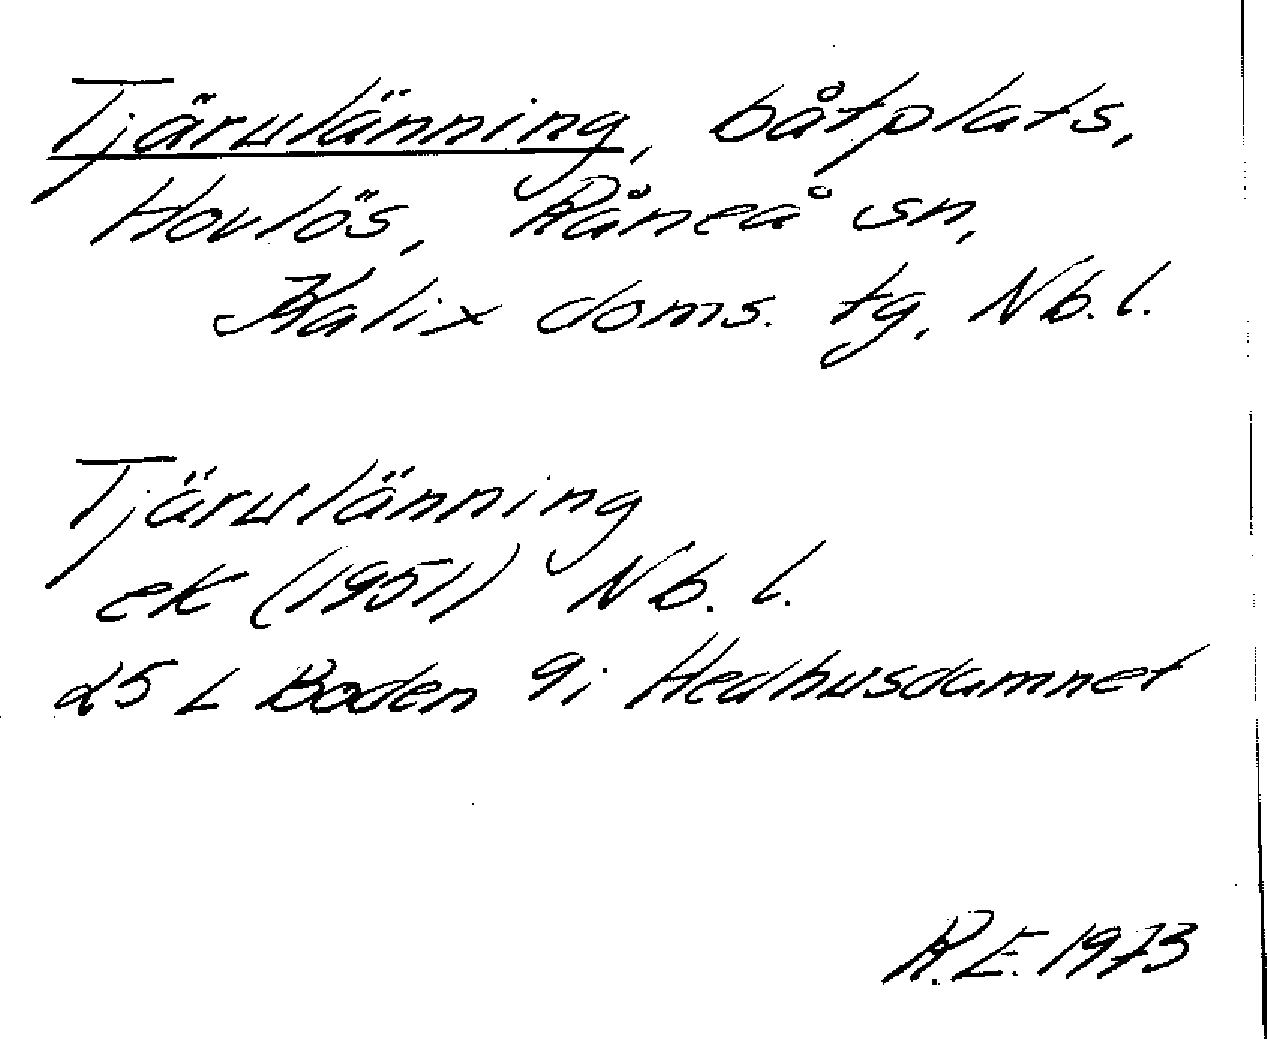 Tjärulänning, båtplats,
Hovlös, Råneå sn,
Kalix doms. tg, Nb. l.
Tjärulänning
ek (1951) Nb. l.
25 L Boden 9i Hedhusdamnet
R.E. 1973